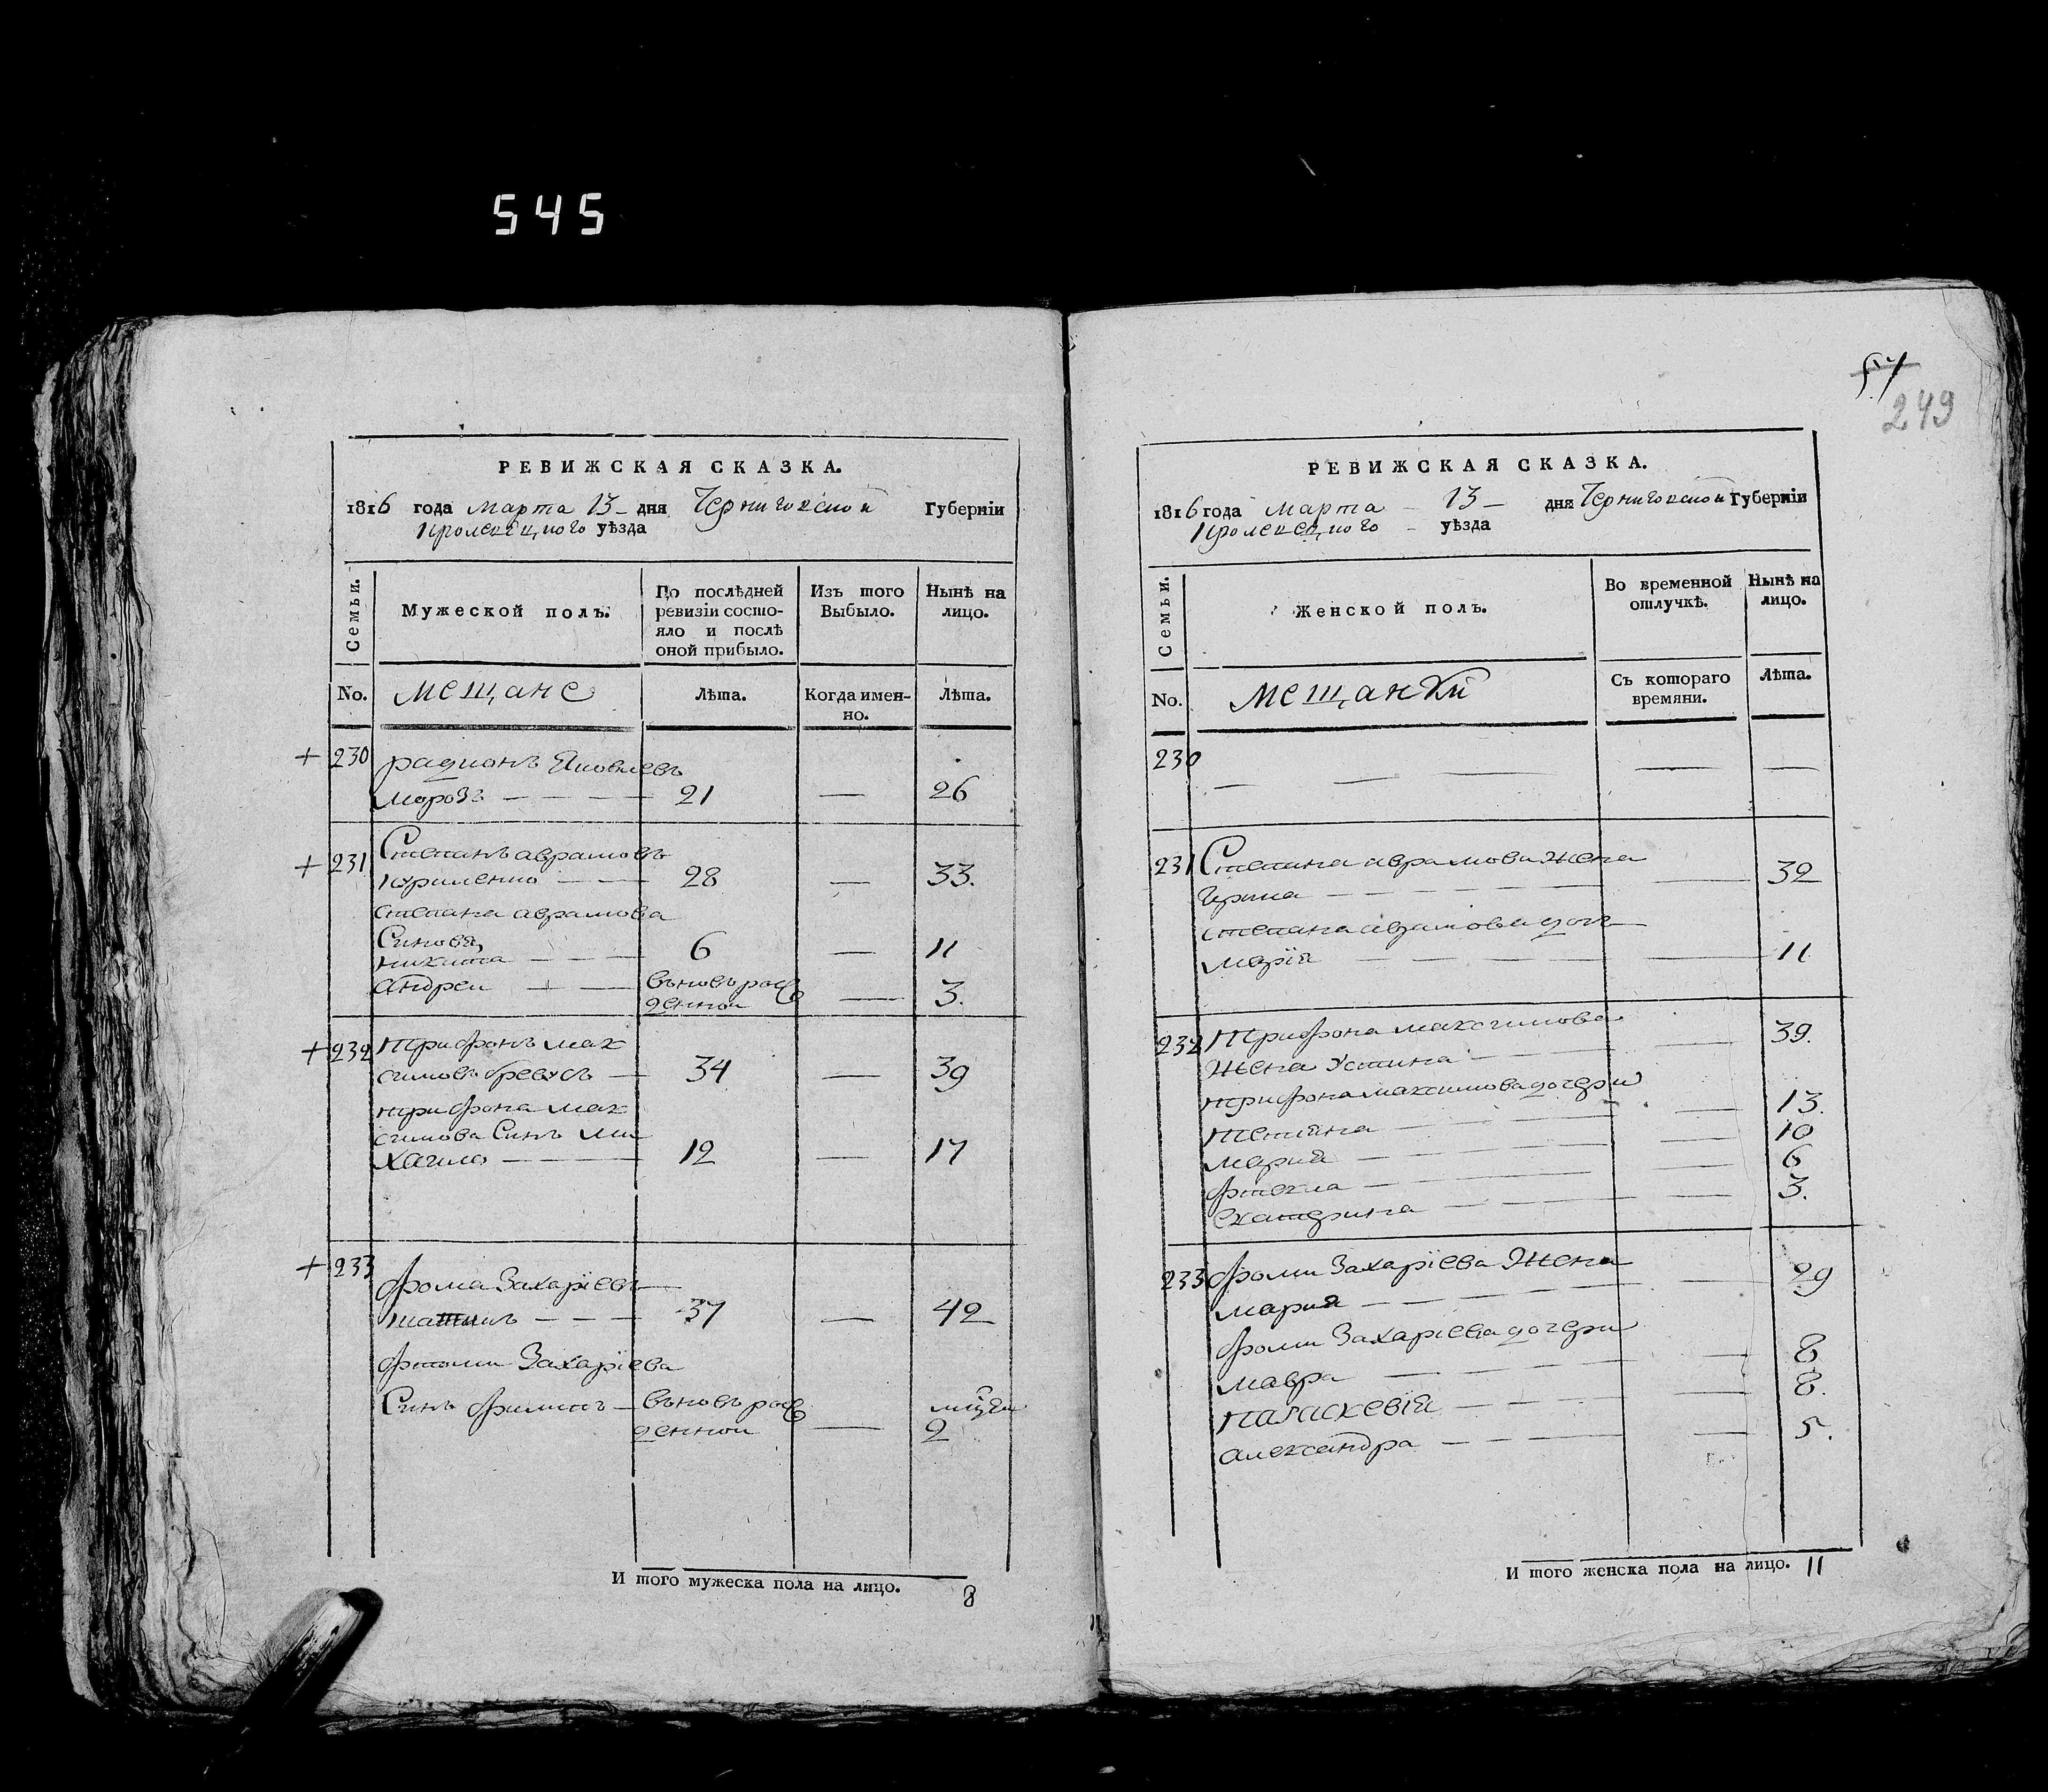 545
РЕВИЖСКАЯ СКАЗКА.
1816 года марта 13 дня Черниговской Губерніи
Кролевецкого уѣзда
Семьи.
Мужеской полъ.
По послѣдней ревизіи состояло и послѣ оной прибыло.
Изъ того Выбыло.
Нынѣ на лицо.
No.
мещане
Лѣта.
Когда именно.
Лѣта.
+ 230 радионъ Яковлевъ
морозъ 21 — 26
+ 231 Степанъ аврамовъ
28 — 33.
степана аврамова
Синовя,
никита 6 — 11
андреи вьновъ рож
денной — 3.
+ 232 трифонъ мак
симовъ бревусъ 34 — 39
трифона мак
симова Синъ ми
хаило 12 — 17
+ 233
фома Захаріевъ
37 — 42
фтоми Захаріева
Синъ филипъ вьновъ рож
денной — 2
И того мужеска пола на лицо. 8
57
249
РЕВИЖСКАЯ СКАЗКА.
1816 года марта 13 дня Черниговской Губерніи
Кролевецкого уѣзда
Семьи.
Женской полъ.
Во временной отлучкѣ.
Нынѣ на лицо.
No.
мещанки
Съ котораго времяни.
Лѣта.
230
231 Степана аврамова жена
Ирина — 32
степана аврамова доч
марія — 11
232 трифона максимова
жена Устина — 39.
трифона максимова дочери
тетияна — 13.
мария — 10
фтекла — 6
екатерина — 3.
233 фоми Захаріева Жена
мария — 29
фоми Захаріева дочери
мавра — 8
параскевія — 8.
александра — 5.
И того женска пола на лицо. 11